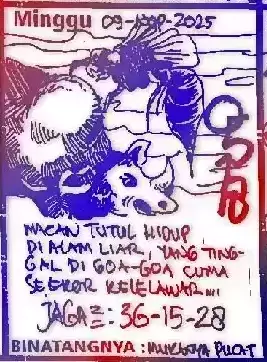 Minggu 09-NOP-2025
MACAN TUTUL HIDUP
DI ALAM LIAR, YANG TING-
GAL DI GOA-GOA CUMA
SEEKOR KELELAWAR...
JAGA²: 36-15-28
BINATANGNYA :